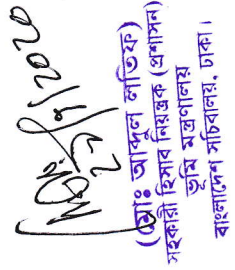 ২১/৭/২০২০
(মোঃ আব্দুল লতিফ)
সহকারী হিসাব নিয়ন্ত্রক (প্রশাসন)
ভূমি মন্ত্রণালয়
বাংলাদেশ সচিবালয়, ঢাকা।